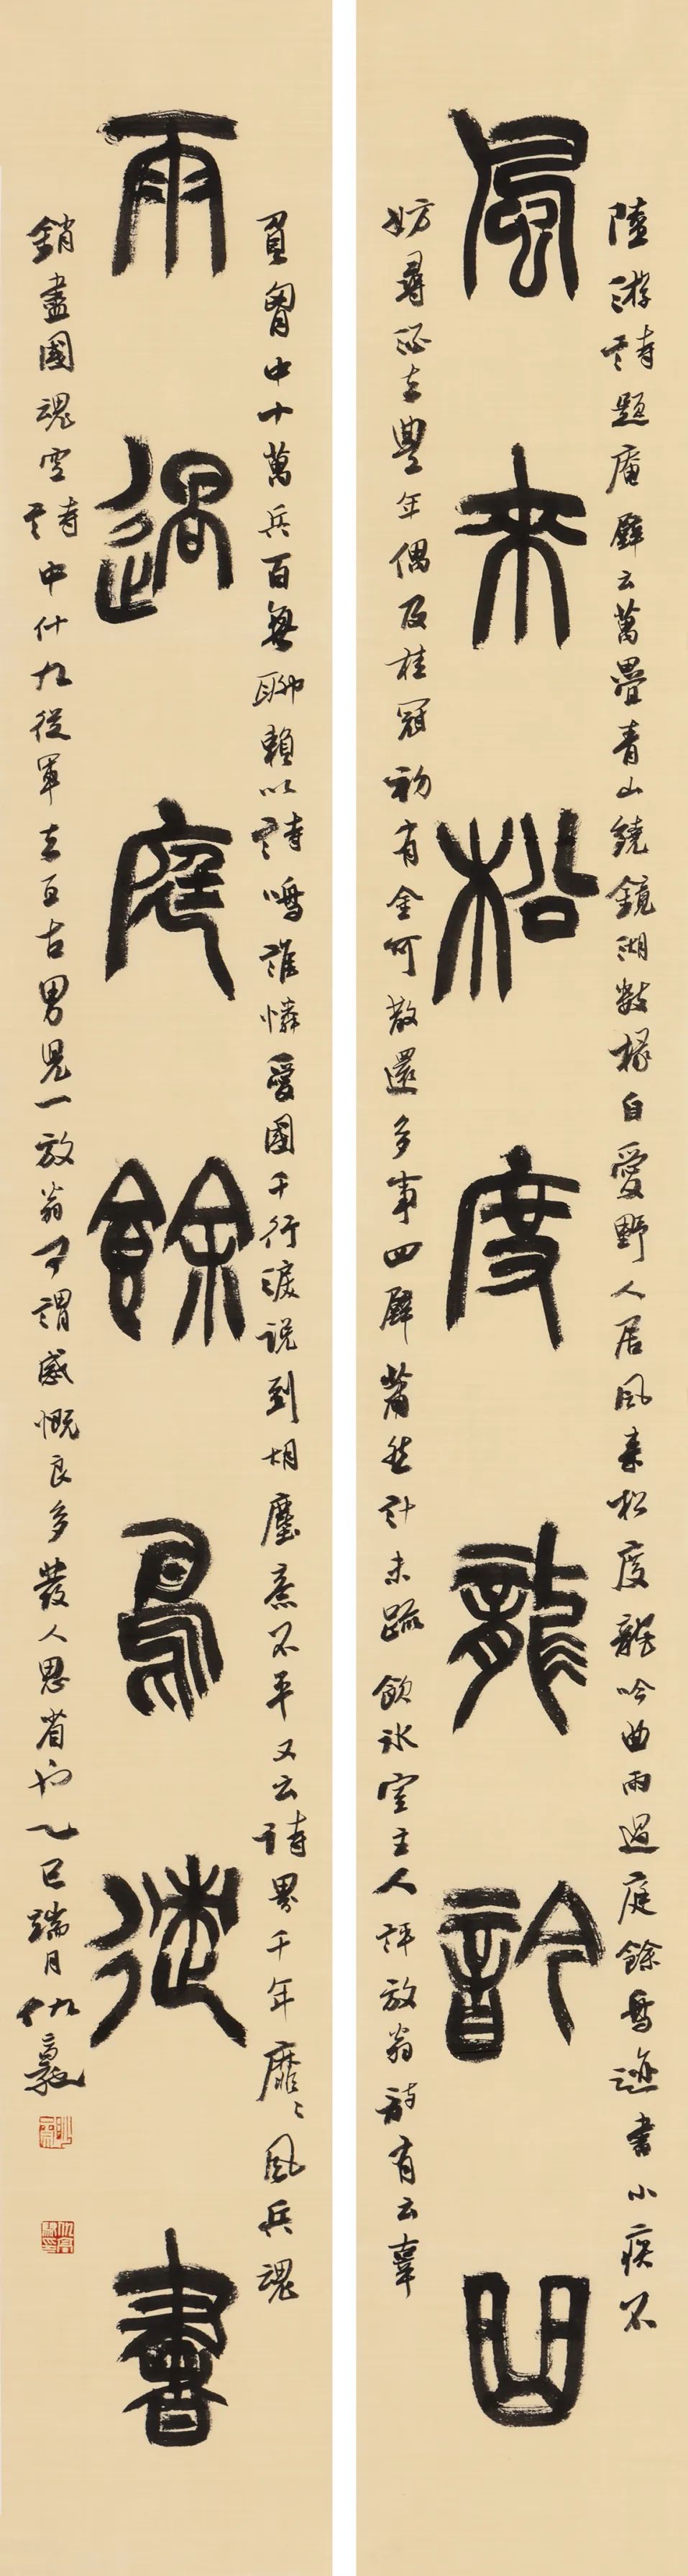 風來松度龍吟曲
陸游詩題庵壁云萬疊青山繞鏡湖數椽自愛野人居風來松度龍吟曲雨過庭餘鳥迹書小疾不
妨尋酒去豐年偶及挂冠初有金何散還多事四壁蕭然計未疏飲冰室主人評放翁詩有云辜
雨過庭餘鳥迹書
負胷中十萬兵百無聊賴以詩鳴誰憐愛國千行淚說到胡塵意不平又云詩界千年靡〻風兵魂
銷盡國魂空詩中什九從軍樂亙古男兒一放翁可謂感慨良多發人思省也乙巳端月仇高馳